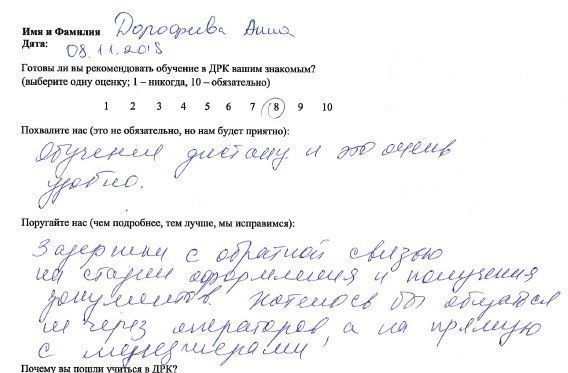 Имя и Фамилия Дорофеева Анна
Дата: 08.11.2018
Готовы ли вы рекомендовать обучение в ДРК вашим знакомым?
(выберите одну оценку; 1 – никогда, 10 – обязательно)
1 2 3 4 5 6 7 8 9 10
Похвалите нас (это не обязательно, но нам будет приятно):
Обучения дистану и это очень
удобно.
Поругайте нас (чем подробнее, тем лучше, мы исправимся):
Задержки с обратной связью
на стадии оформления и получения
документов. Хотелось бы общаться
не через операторов, а на прямую
с менеджерами,
Почему вы пошли учиться в ДРК?